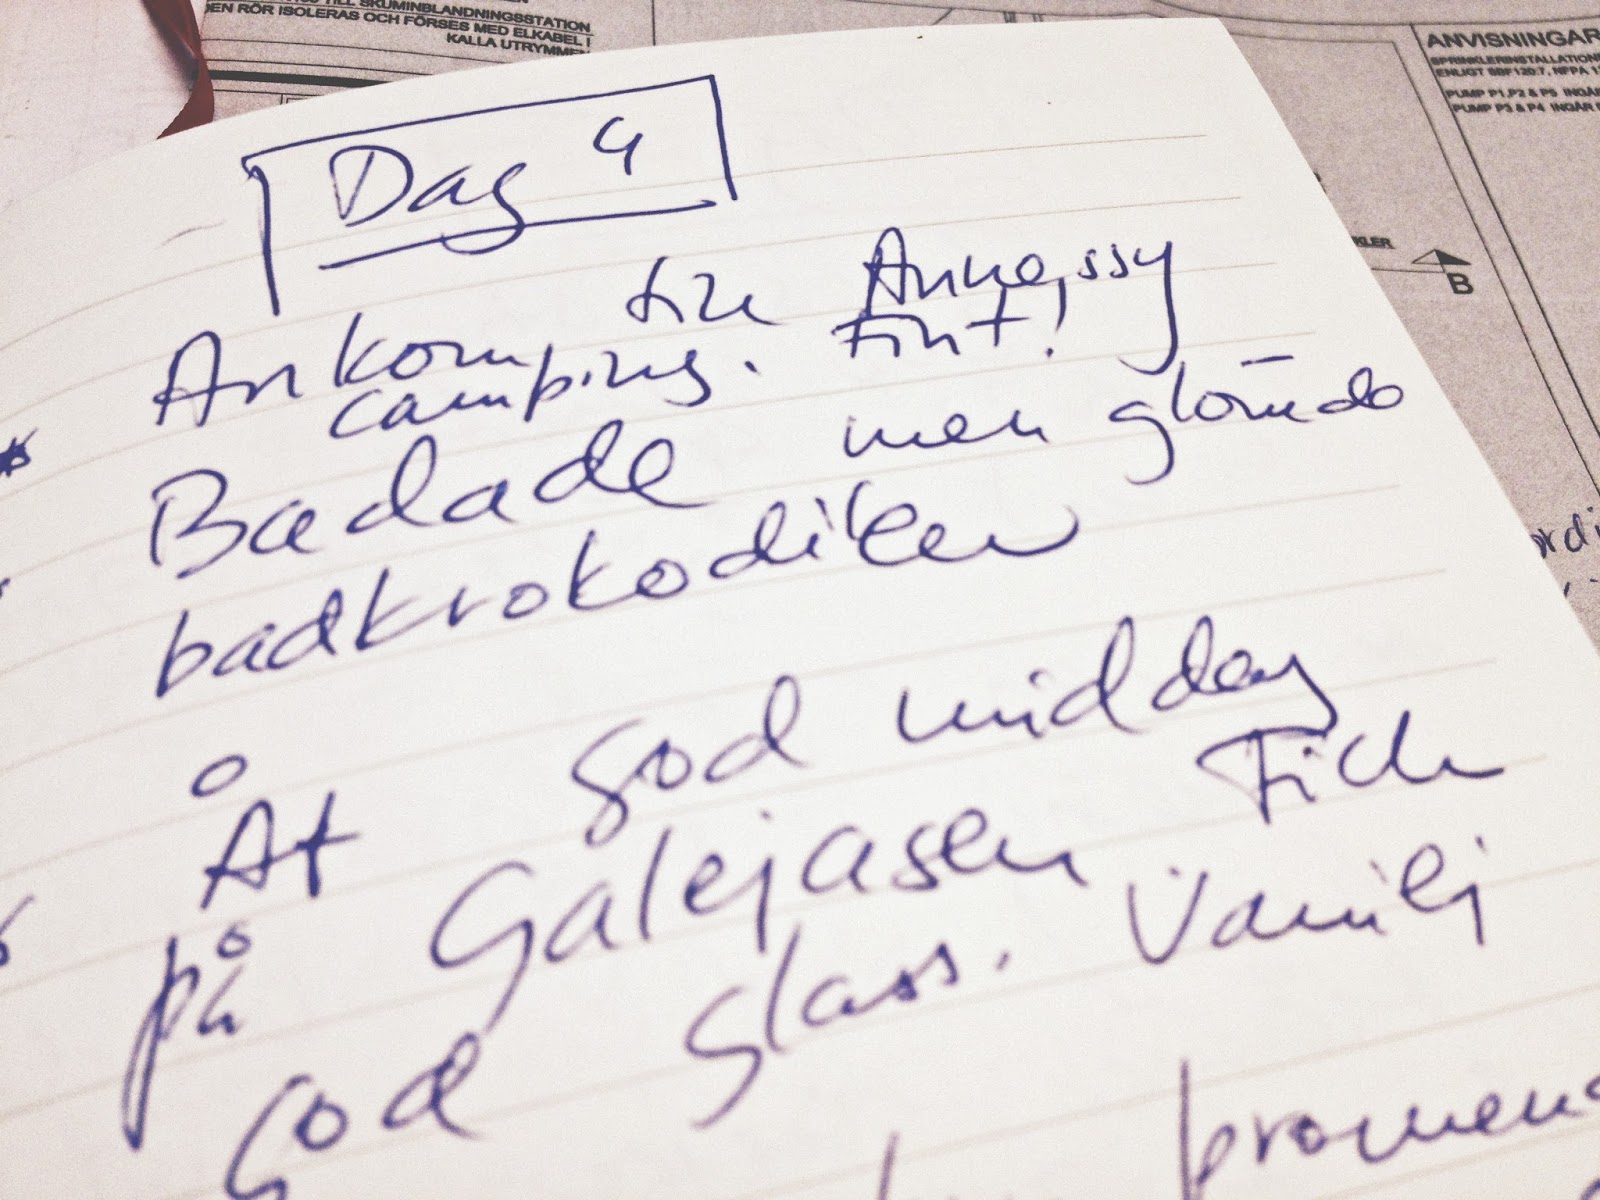 TILL SKUMINBLANDNINGSSTATION
DEN RÖR ISOLERAS OCH FÖRSES MED ELKABEL I
KALLA UTRYMMEN
ANVISNINGAR
SPRINKLERINSTALLATIONE
ENLIGT SBF120:7, NFPA 1
PUMP P1,P2 & P5 INGÅR
PUMP P3 & P4 INGÅR
KLER
B
Dag 4
Ankom till Annessy
camping. Fint!
Badade men glömde
badkrokodilen
Åt god middag
på Galejasen Fick
god glass. Vanilj
promen